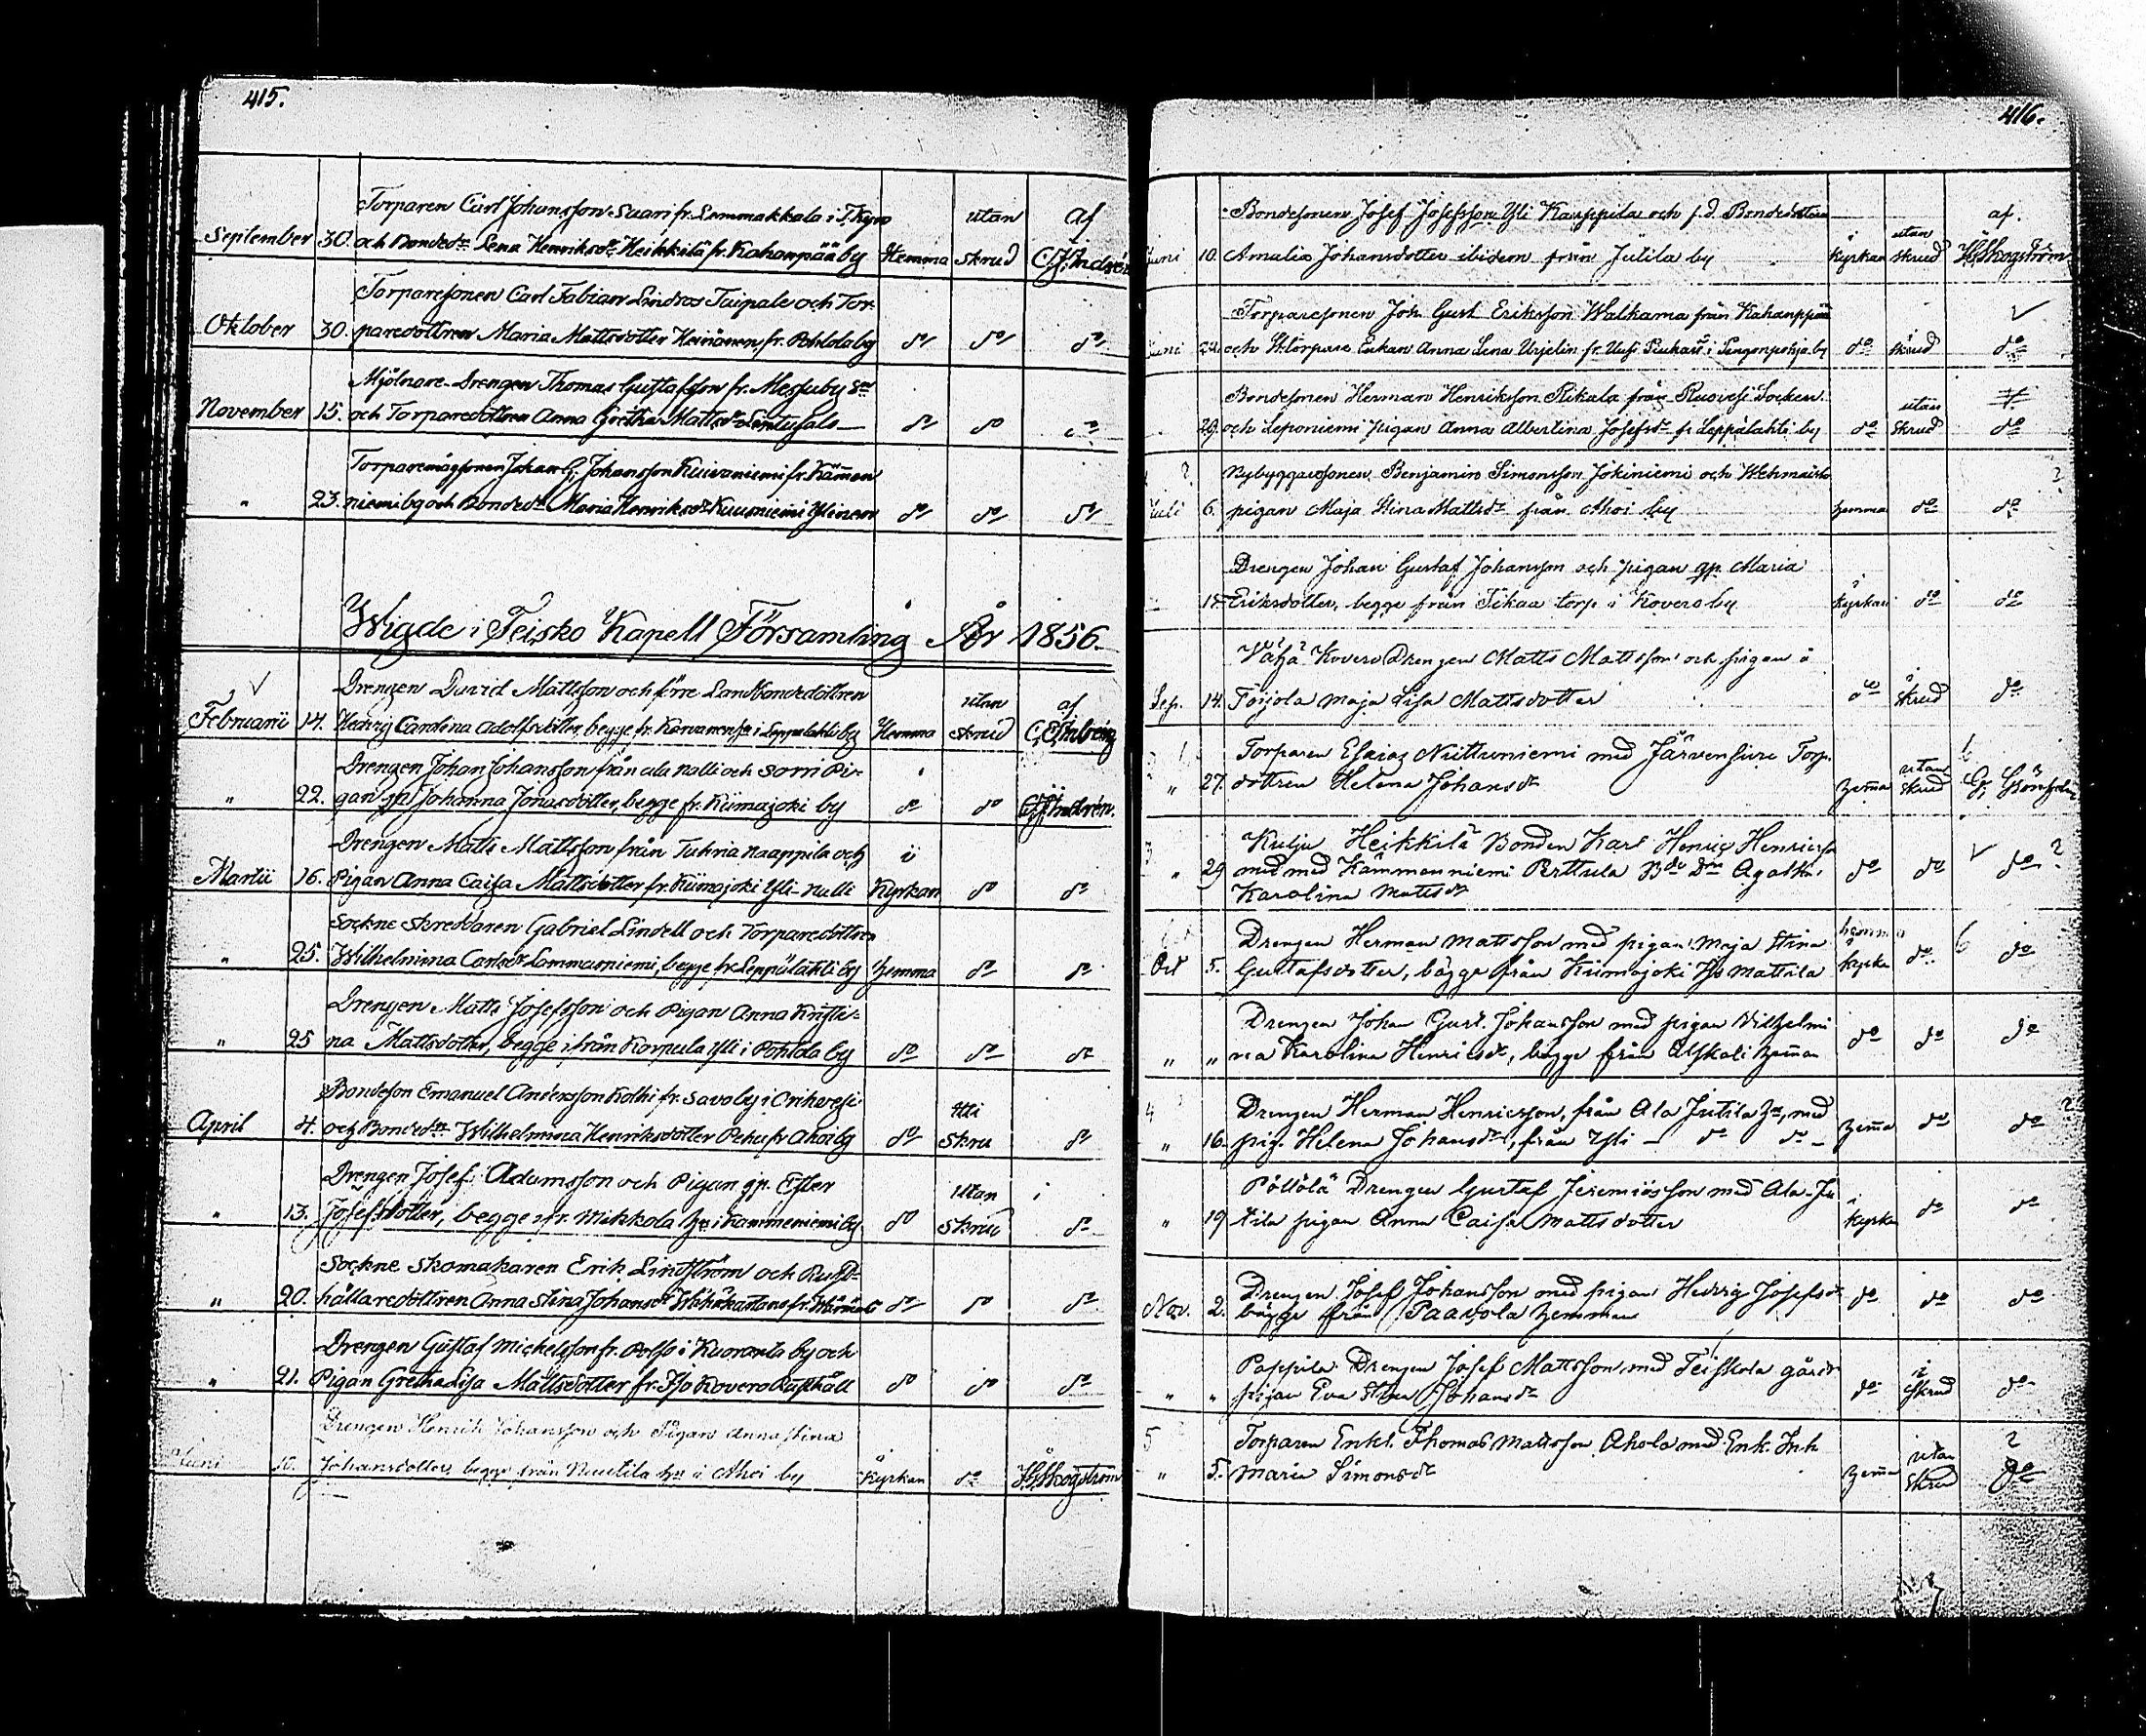 415.
Torparen Carl Johansson Saari fr. Lemmakkala i T.Kyro utan af
September 30. och Bonded:r Lena Henriksd:r Heikkilä fr. Kahanpää by Hemma skrud C.J. Andrén
Torparesonen Carl Fabian Lindros Taipale och Tor-
Oktober 30. paredottren Maria Mattsdotter Heinänen fr. Pohtola by d:o d:o d:o
Mjölnare-Drengen Thomas Gustafsson fr. Messuby S:n
November 15. och Torparedottren Anna Gretha Mattsd:r Lentusalo d:o d:o d:o
Torparemågsonen Johan G. Johansson Kuivaniemi fr. Kämen
" 23. niemi by och Bonded:r Maria Henriksd:r Kuusniemi Ylinen d:o d:o d:o
Wigde i Teisko Kapell Församling År 1856.
Drengen David Mattsson och förre Landbondedottren utan af
Februarii 14. Hedvig Carolina Adolfsdotter, begge fr. i Leppälahti by Hemma skrud
Drengen Johan Johansson från ala Nalli och Sorri Pi-
" 22. gan gp. Johanna Jonasdotter, begge fr. Kiimajoki by d:o d:o C.J. Andrén.
Drengen Matts Mattsson från Tuhria Naappila och i
Martii 16. Pigan Anna Caisa Mattsdotter fr. Kiimajoki Yli-Nalli Kyrkan d:o d:o
Sockne Skreddaren Gabriel Lindell och Torparedottren
" 25. Wilhelmina Carlsd:r Lammasniemi, begge fr. Leppälahti by hemma d:o d:o
Drengen Matts Josefsson och Pigan Anna Kristi-
" 25 na Mattsdotter, begge ifrån Korpula Yli i Pohtola by d:o d:o d:o
Bondeson Emanuel Andersson Kolhi fr. Savo by i Orihvesi Uti
April 4. och Bonded:rn Wilhelmina Henriksdotter Pehu fr. Ahoi by d:o Skru d:o
Drengen Josef Adamsson och Pigan gp. Ester Utan
" 13. Josefsdotter, begge fr. Mikkola hn i Kammeniemi by d:o Skrud d:o
Sockne Skomakaren Erik Lindström och Rust-
" 20. hållaredottren Anna Stina Johansd:r d:o d:o d:o
Drengen Gustaf Michelsson fr. Polso i Kuoranta by och
" 21. Pigan Gretha Lisa Mattsdotter fr. Iso Kovero Rusthåll d:o d:o d:o
Drengen Henrik Johansson och Pigan Anna Stina
Juni 10. Johansdotter begge från Nuutila hn i Ahoi by Kyrkan d:o H. Skogström
416.
Bondesonen Josef Josefsson Yli Kauppila och f.d. Bondedottren i utan af.
Juni 10. Amalia Johansdotter ibidem från Jutila by Kyrkan skrud H. Skogström
Torparesonen Joh. Gust. Eriksson Walkama från Kahanpää
Juni 22. och St. torpare Enkan Anna Lena Urjelin fr. Uusi i by d:o i skrud d:o
Bondesonen Herman Henriksson Rikala från Ruovesi Socken utan
29. och Leponiemi pigan Anna Albertina Josefsd:r fr. Leppälahti by d:o skrud d:o
Nybyggaresonen Benjamin Simonsson Jokiniemi och
Juli 6. pigan Maja Stina Mattsd:r från Ahoi by hemma d:o d:o
Drengen Johan Gustaf Johansson och pigan gp. Maria i
Eriksdotter, begge från Tikaa torp i Kovero by kyrkan d:o d:o
Vähä Kovero Drengen Matts Mattsson och pigan å i
Sep. 14. Toijola Maja Lisa Mattsdotter d:o skrud d:o
Torparen Esaias Niittuniemi med Järvensuu Torp- utan
" 27. dottren Helena Johansd:r hemma skrud
Kulju Heikkilä Bonden Karl Henric Henricss
" 29 med Kämmenniemi Perttula B:de D:rn Agatha d:o d:o d:o
Karolina Mattsd:r
Drengen Herman Mattsson med pigan Maja Stina
Oct 5. Gustafsdotter, bägge från Kiimajoki Iso Mattila kyrka d:o d:o
Drengen Johan Gust. Johansson med pigan Vilhelmi
" " na Karolina Henricsd:r, bägge från Alskali hemman d:o d:o d:o
Drengen Herman Henricsson, från Ala Jutila hn, med
" 16. pig. Helena Johansd:r, från Yli – d:o d:o – hemma d:o d:o
Pöllölä Drengen Gustaf Jeremiasson med Ala-Ju i
" 19 tila pigan Anna Caisa Mattsdotter kyrka d:o d:o
Drengen Josef Johansson med pigan Hedvig Josefsd:r
Nov. 2. bägge från Paavola hemman d:o d:o d:o
Pappila Drengen Josef Mattsson med Teiskola gårds i
" " pigan Eva Stina Johansd:r d:o skrud d:o
Torparen Enkl. Thomas Mattsson Ahola med Enk. Inh. utan
" 5. Maria Simonsd:r hemma skrud d:o